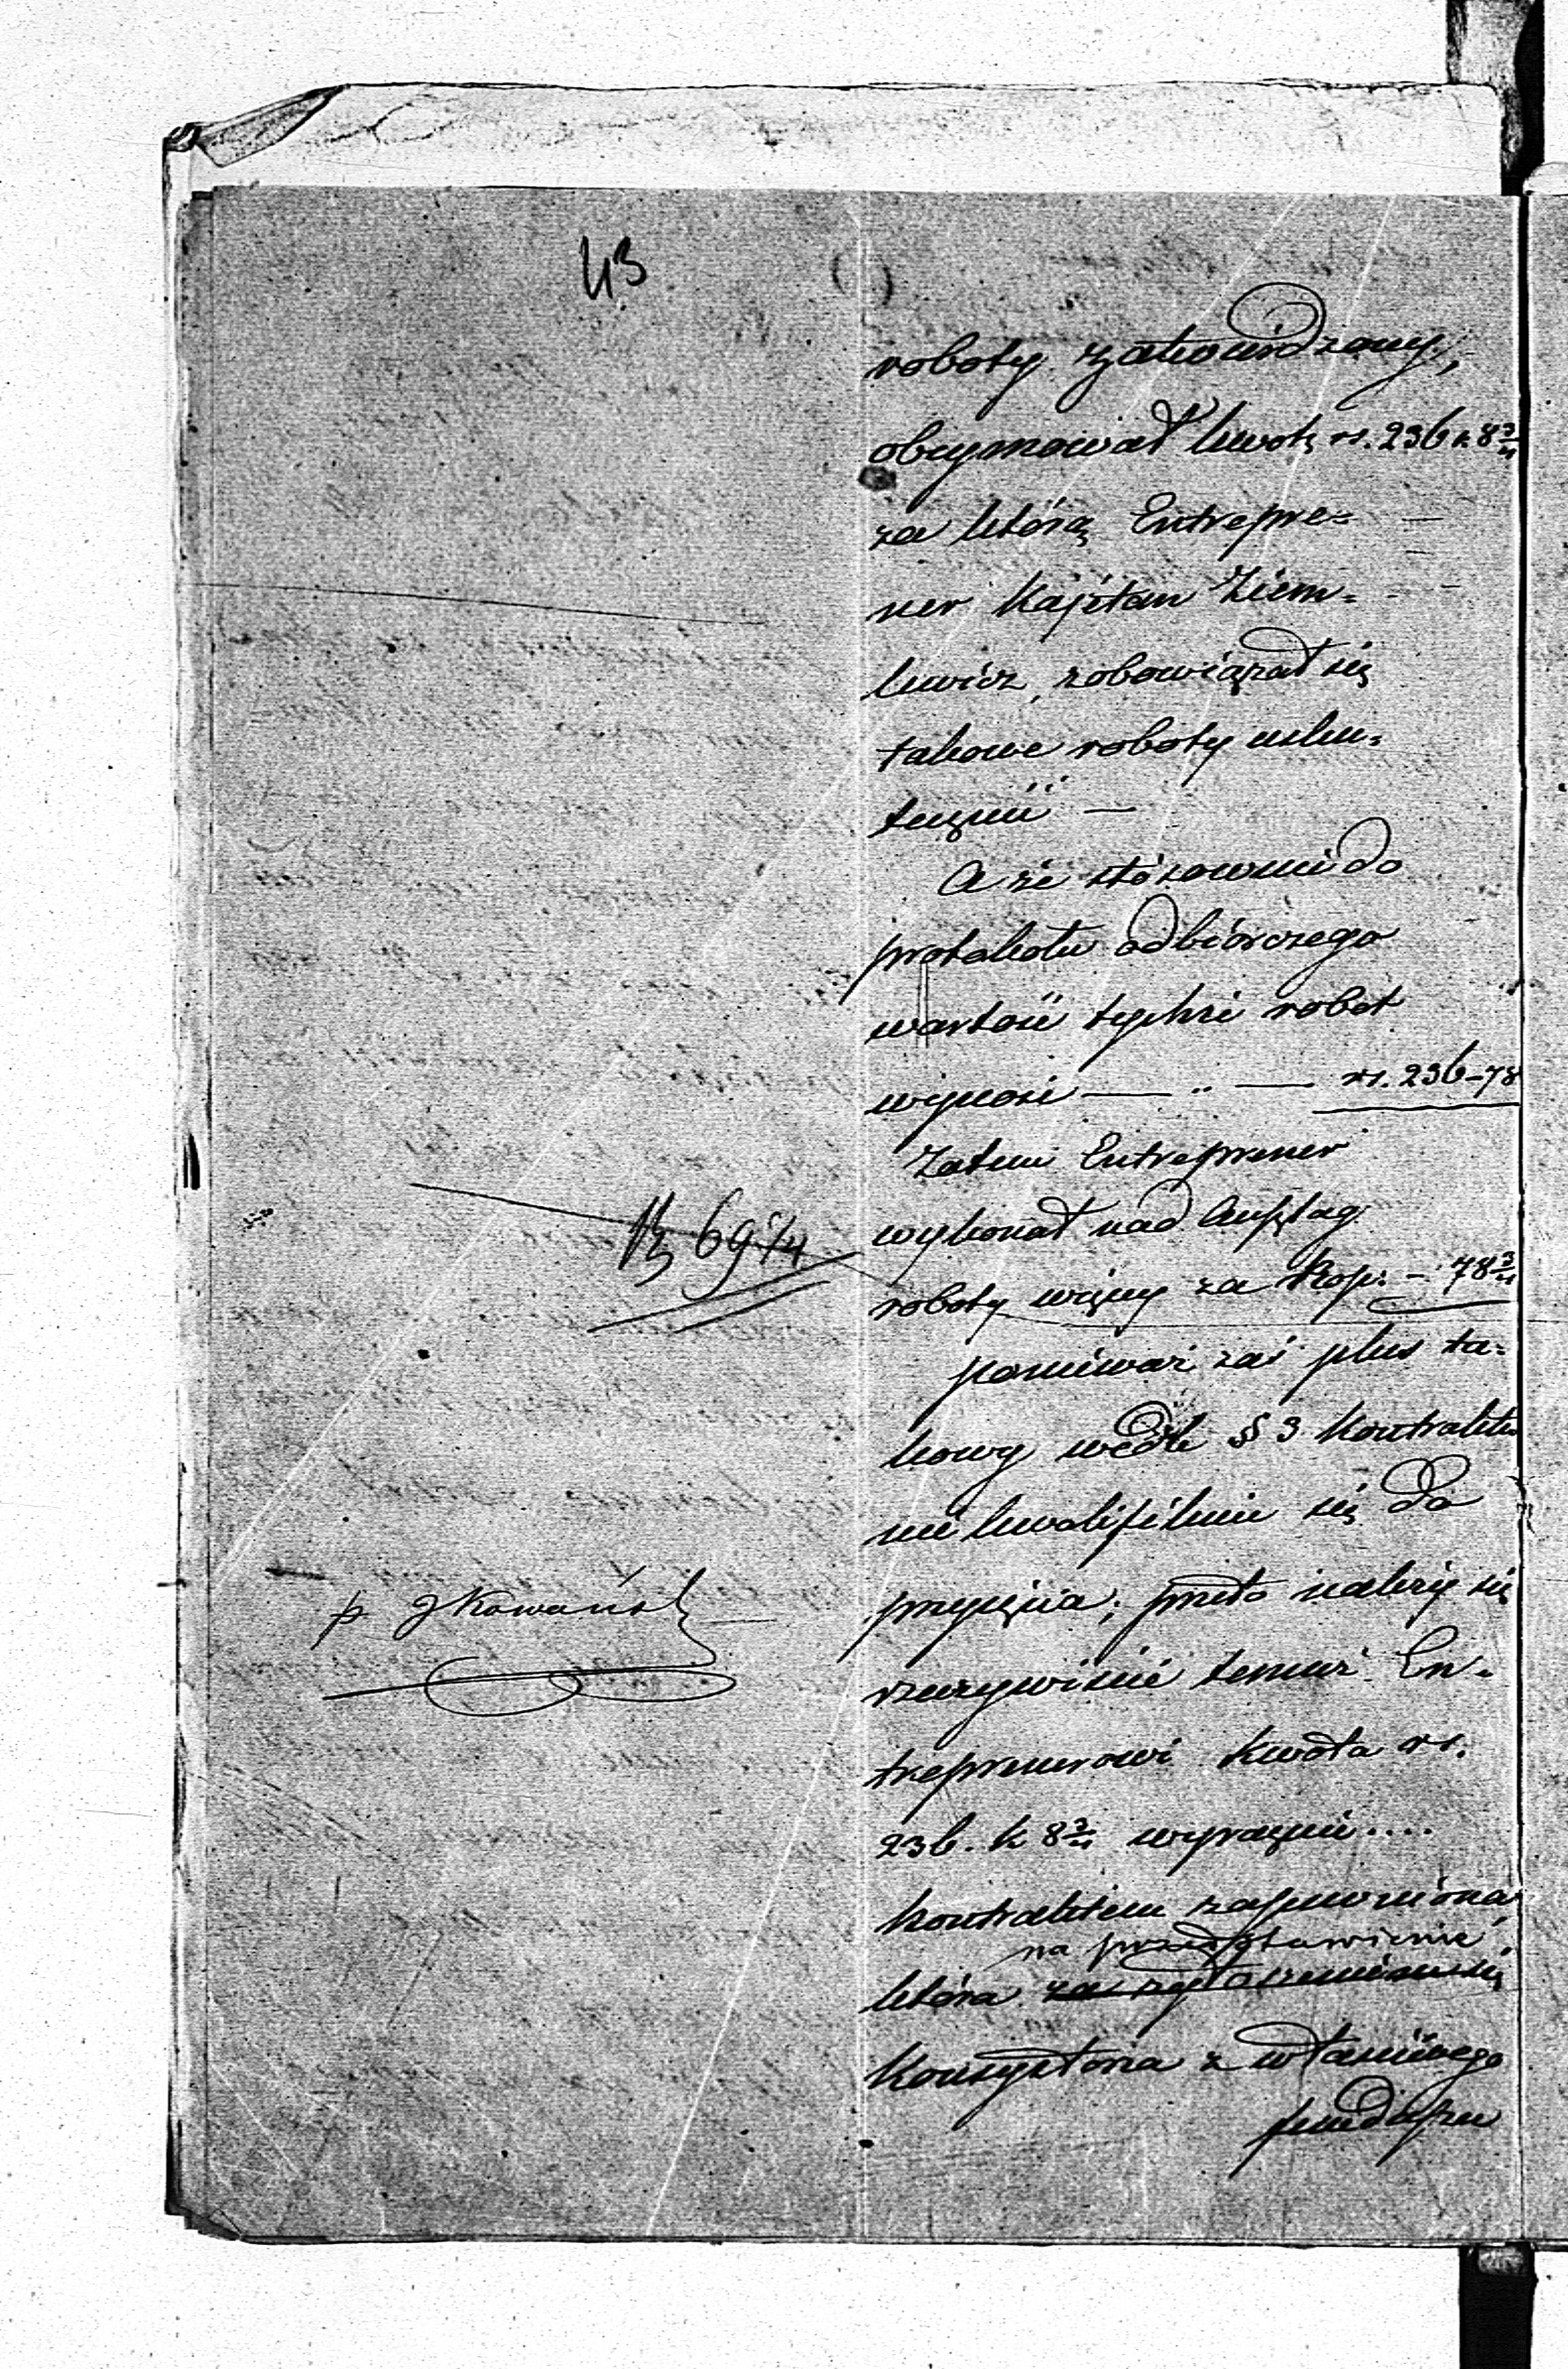 43
roboty zatwierdzony,
obejmował kwotę rs. 236 k 8 3/4
za którą Entrepre=
ner Kajetan Ziem=
kiewicz, zobowiązał się
takowe roboty usku=
tecznić —
A że stósownie do
protokołu odbiorczego
wartość tychże robot
wynosi — „ — rs. 236-78
Zatem Entreprener
wykonał nad Anszlag
roboty więcej za Kop. — 78 3/4
69 1/4
ponieważ zaś plus ta=
kowy wedle § 3 Kontraktu
nie kwalifikuie się do
przyjęcia; przeto należy się
rzeczywiście temuż En=
treprenerowi kwota rs.
236. k 8 3/4 wyraźnie....
kontraktem zapewniona
na przedstawienie
która za zgłoszeniem się
Konsystorza z właściwego
funduszu